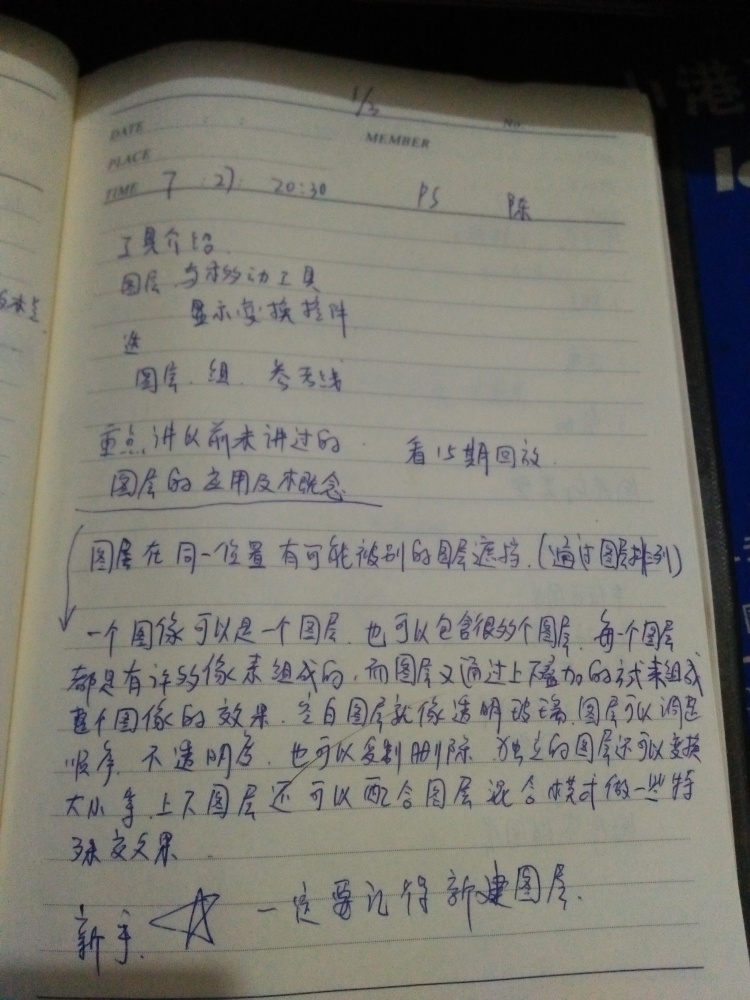 1/3
DATE
No.
MEMBER
PLACE
TIME 7 : 27 20:30 PS 陈
工具介绍.
图层 与移动工具
显示变换控件
选
图层. 组. 参考线
重点讲以前未讲过的 看15期回放.
图层的应用及概念
图层在同一位置有可能被别的图层遮挡.(通过图层排列)
一个图像可以是一个图层. 也可以包含很多个图层. 每一个图层
都是有许多像素组成的, 而图层又通过上下叠加的方式来组成
整个图像的效果. 空白图层就像透明玻璃. 图层可以调整
顺序. 不透明度. 也可以复制删除. 独立的图层还可以变换
大小等. 上下图层还可以配合图层混合模式做一些特
殊效果.
新手. 一定要记得新建图层.
港